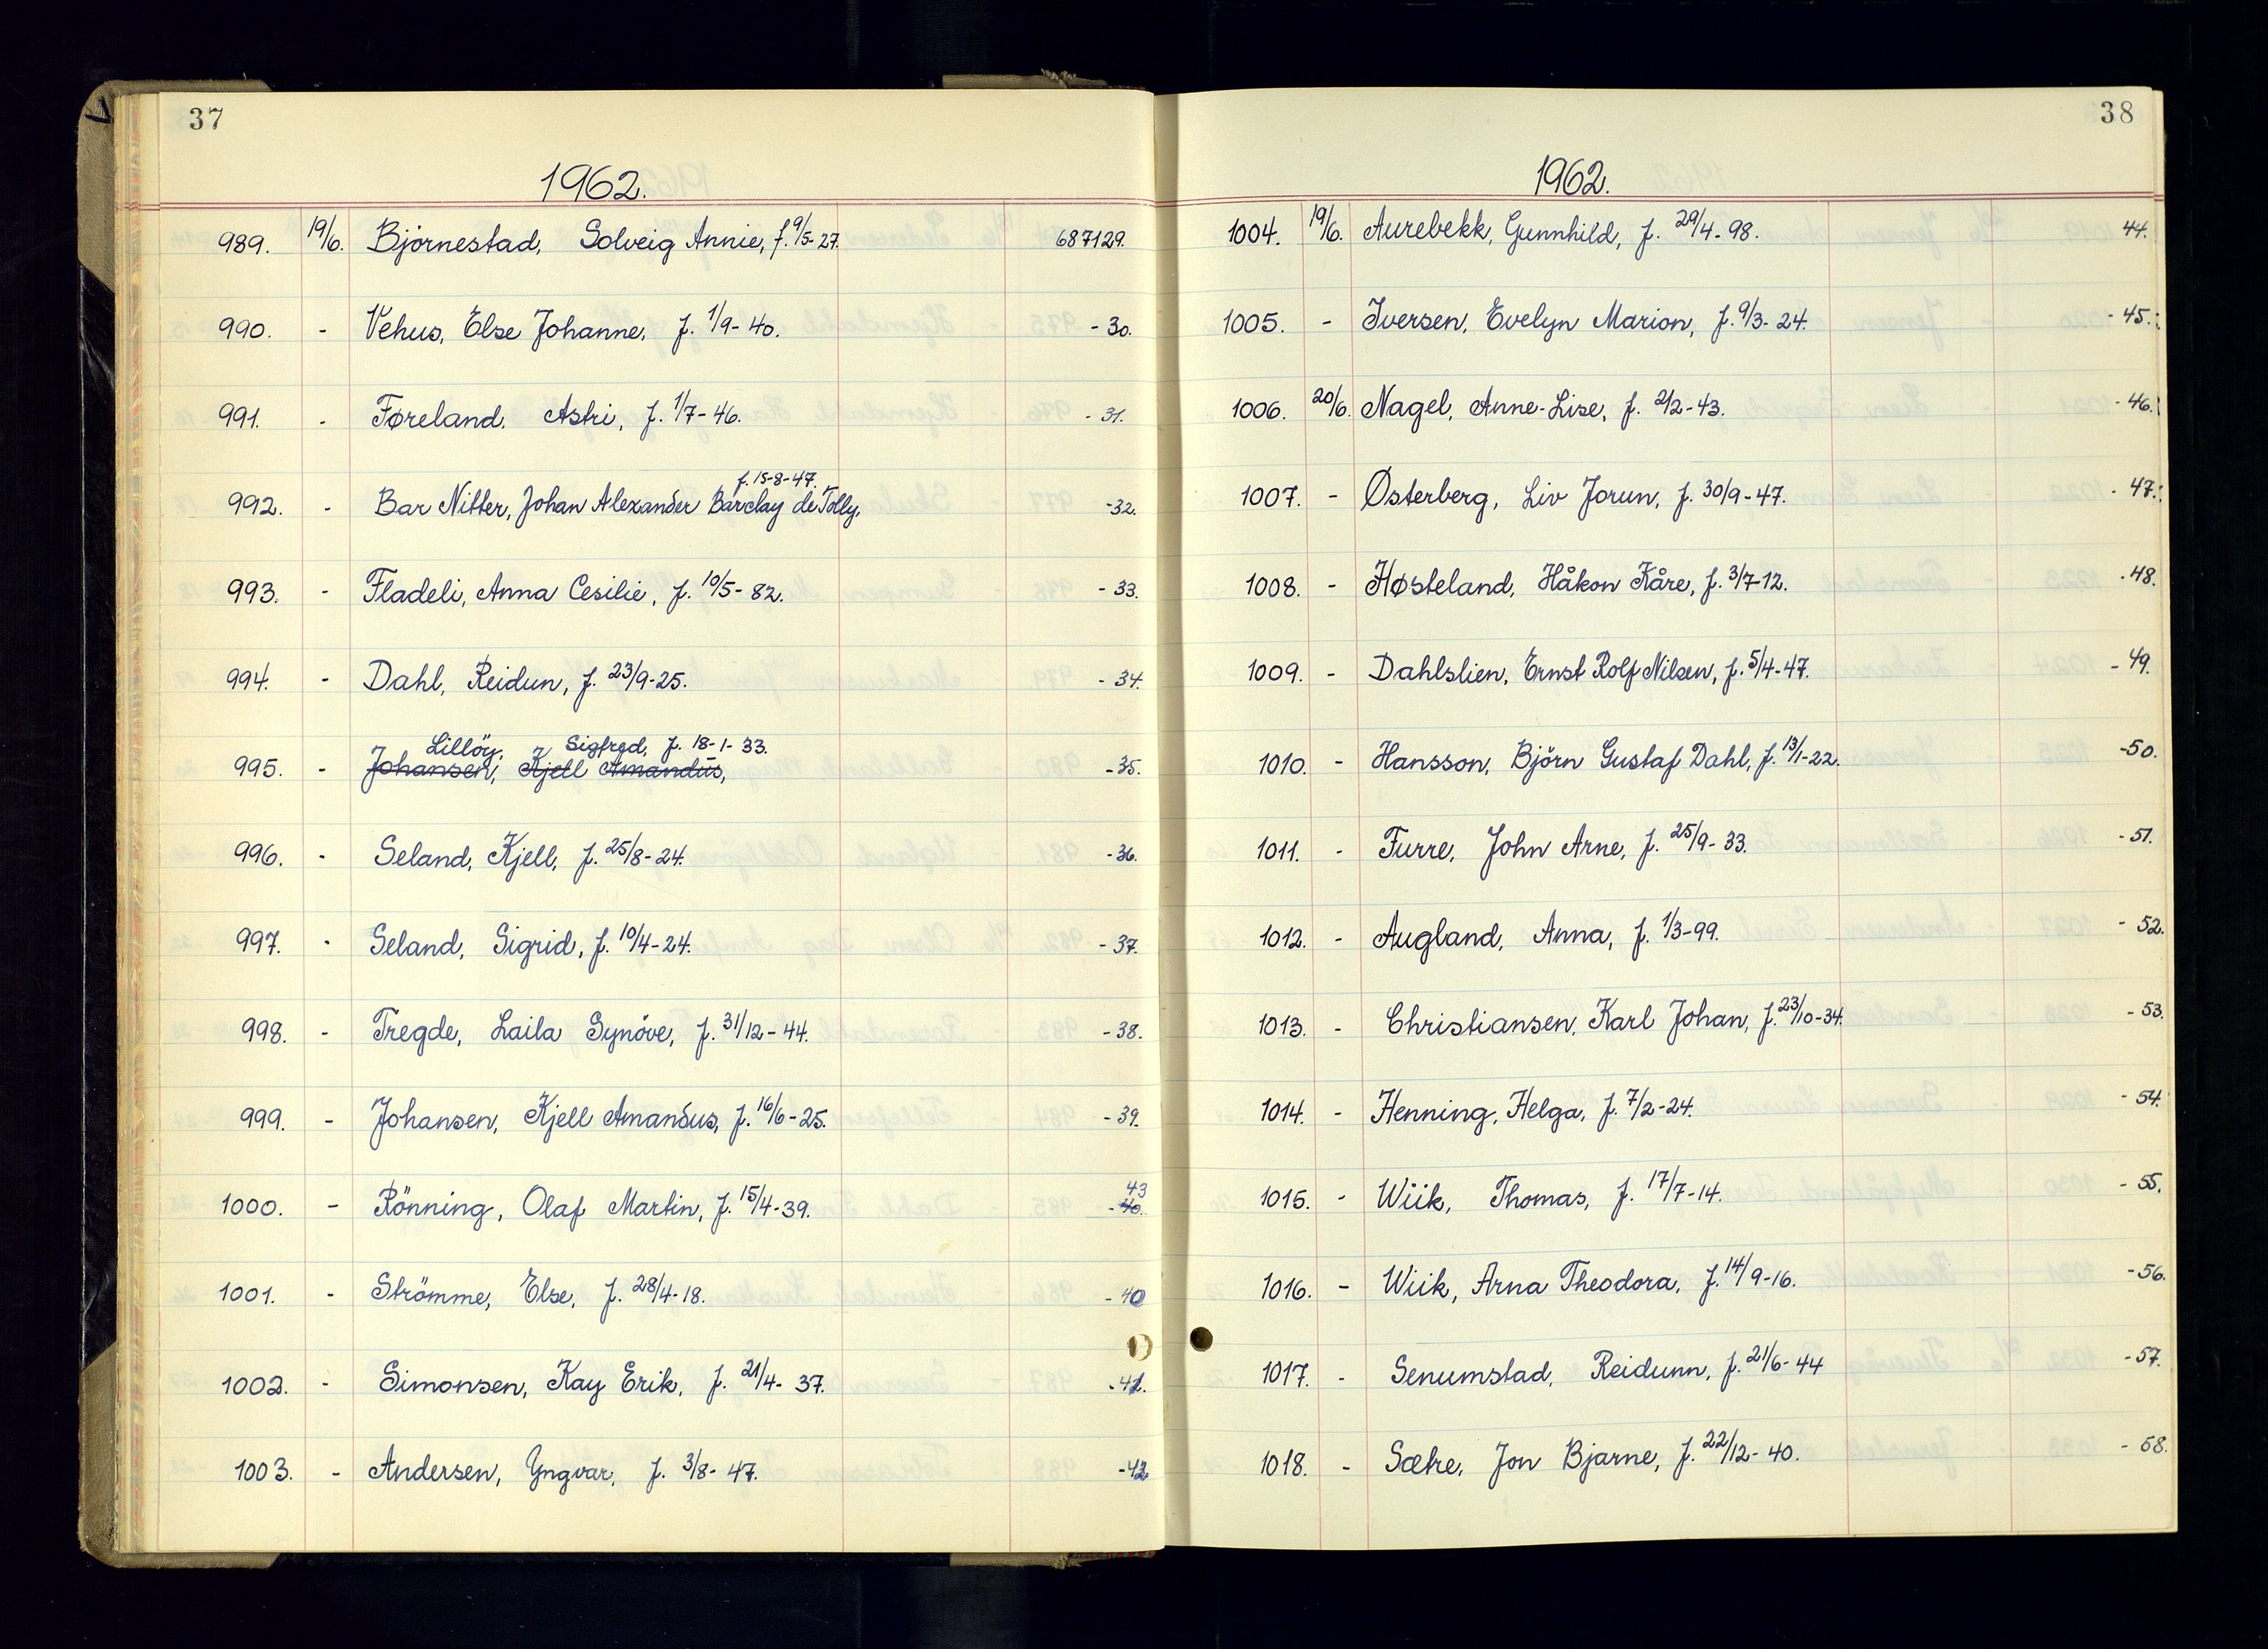 37
1962.
989. 19/6. Björnestad, Solveig Annie, f. 9/5-27. 687129.
990. - Vehus, Else Johanne, f. 1/9-40. -30.
991. - Føreland, Astri, f. 1/7-46. -31.
f. 15-8-47.
992. - Bar Nitter, Johan Alexander Barclay de Tolly, -32.
993. - Fladeli, Anna Cesilie, f. 10/5-82. -33.
994. - Dahl, Reidun, f. 23/9-25. -34.
Lillöy, Sigfred, f. 18-1-33.
995. - Johansen, Kjell Amandus, -35.
996. - Seland, Kjell, f. 25/8-24. -36.
997. - Seland, Sigrid, f. 10/4-24. -37.
998. - Tregde, Laila Synöve, f. 31/12-44. -38.
999. - Johansen, Kjell Amandus, f. 16/6-25. -39.
43
1000. - Rönning, Olaf Martin, f. 15/4-39. -40.
1001. - Strömme, Else, f. 28/4-18. -40
1002. - Simonsen, Kay Erik, f. 21/4-37. -41.
1003. - Andersen, Yngvar, f. 3/8-47. -42
38
1962.
1004. 19/6. Aurebekk, Gunnhild, f. 29/4-98. 44.
1005. - Iversen, Evelyn Marion, f. 9/3-24. -45.
1006. 20/6. Nagel, Anne-Lise, f. 2/2-43. -46.
1007. - Østerberg, Liv Jorun, f. 30/9-47. -47.
1008. - Høsteland, Håkon Kåre, f. 3/7-12. -48.
1009. - Dahlslien, Ernst Rolf Nilsen, f. 5/4-47. -49.
1010. - Hansson, Björn Gustaf Dahl, f. 13/1-22. -50.
1011. - Furre, John Arne, f. 25/9-33. -51.
1012. - Augland, Anna, f. 1/3-99. -52.
1013. - Christiansen, Karl Johan, f. 23/10-34. -53.
1014. - Henning, Helga, f. 7/2-24. -54.
1015. - Wiik, Thomas, f. 17/7-14. -55.
1016. - Wiik, Arna Theodora, f. 14/9-16. -56.
1017. - Senumstad, Reidunn, f. 21/6-44 -57.
1018. - Sætre, Jon Bjarne, f. 22/12-40. -58.